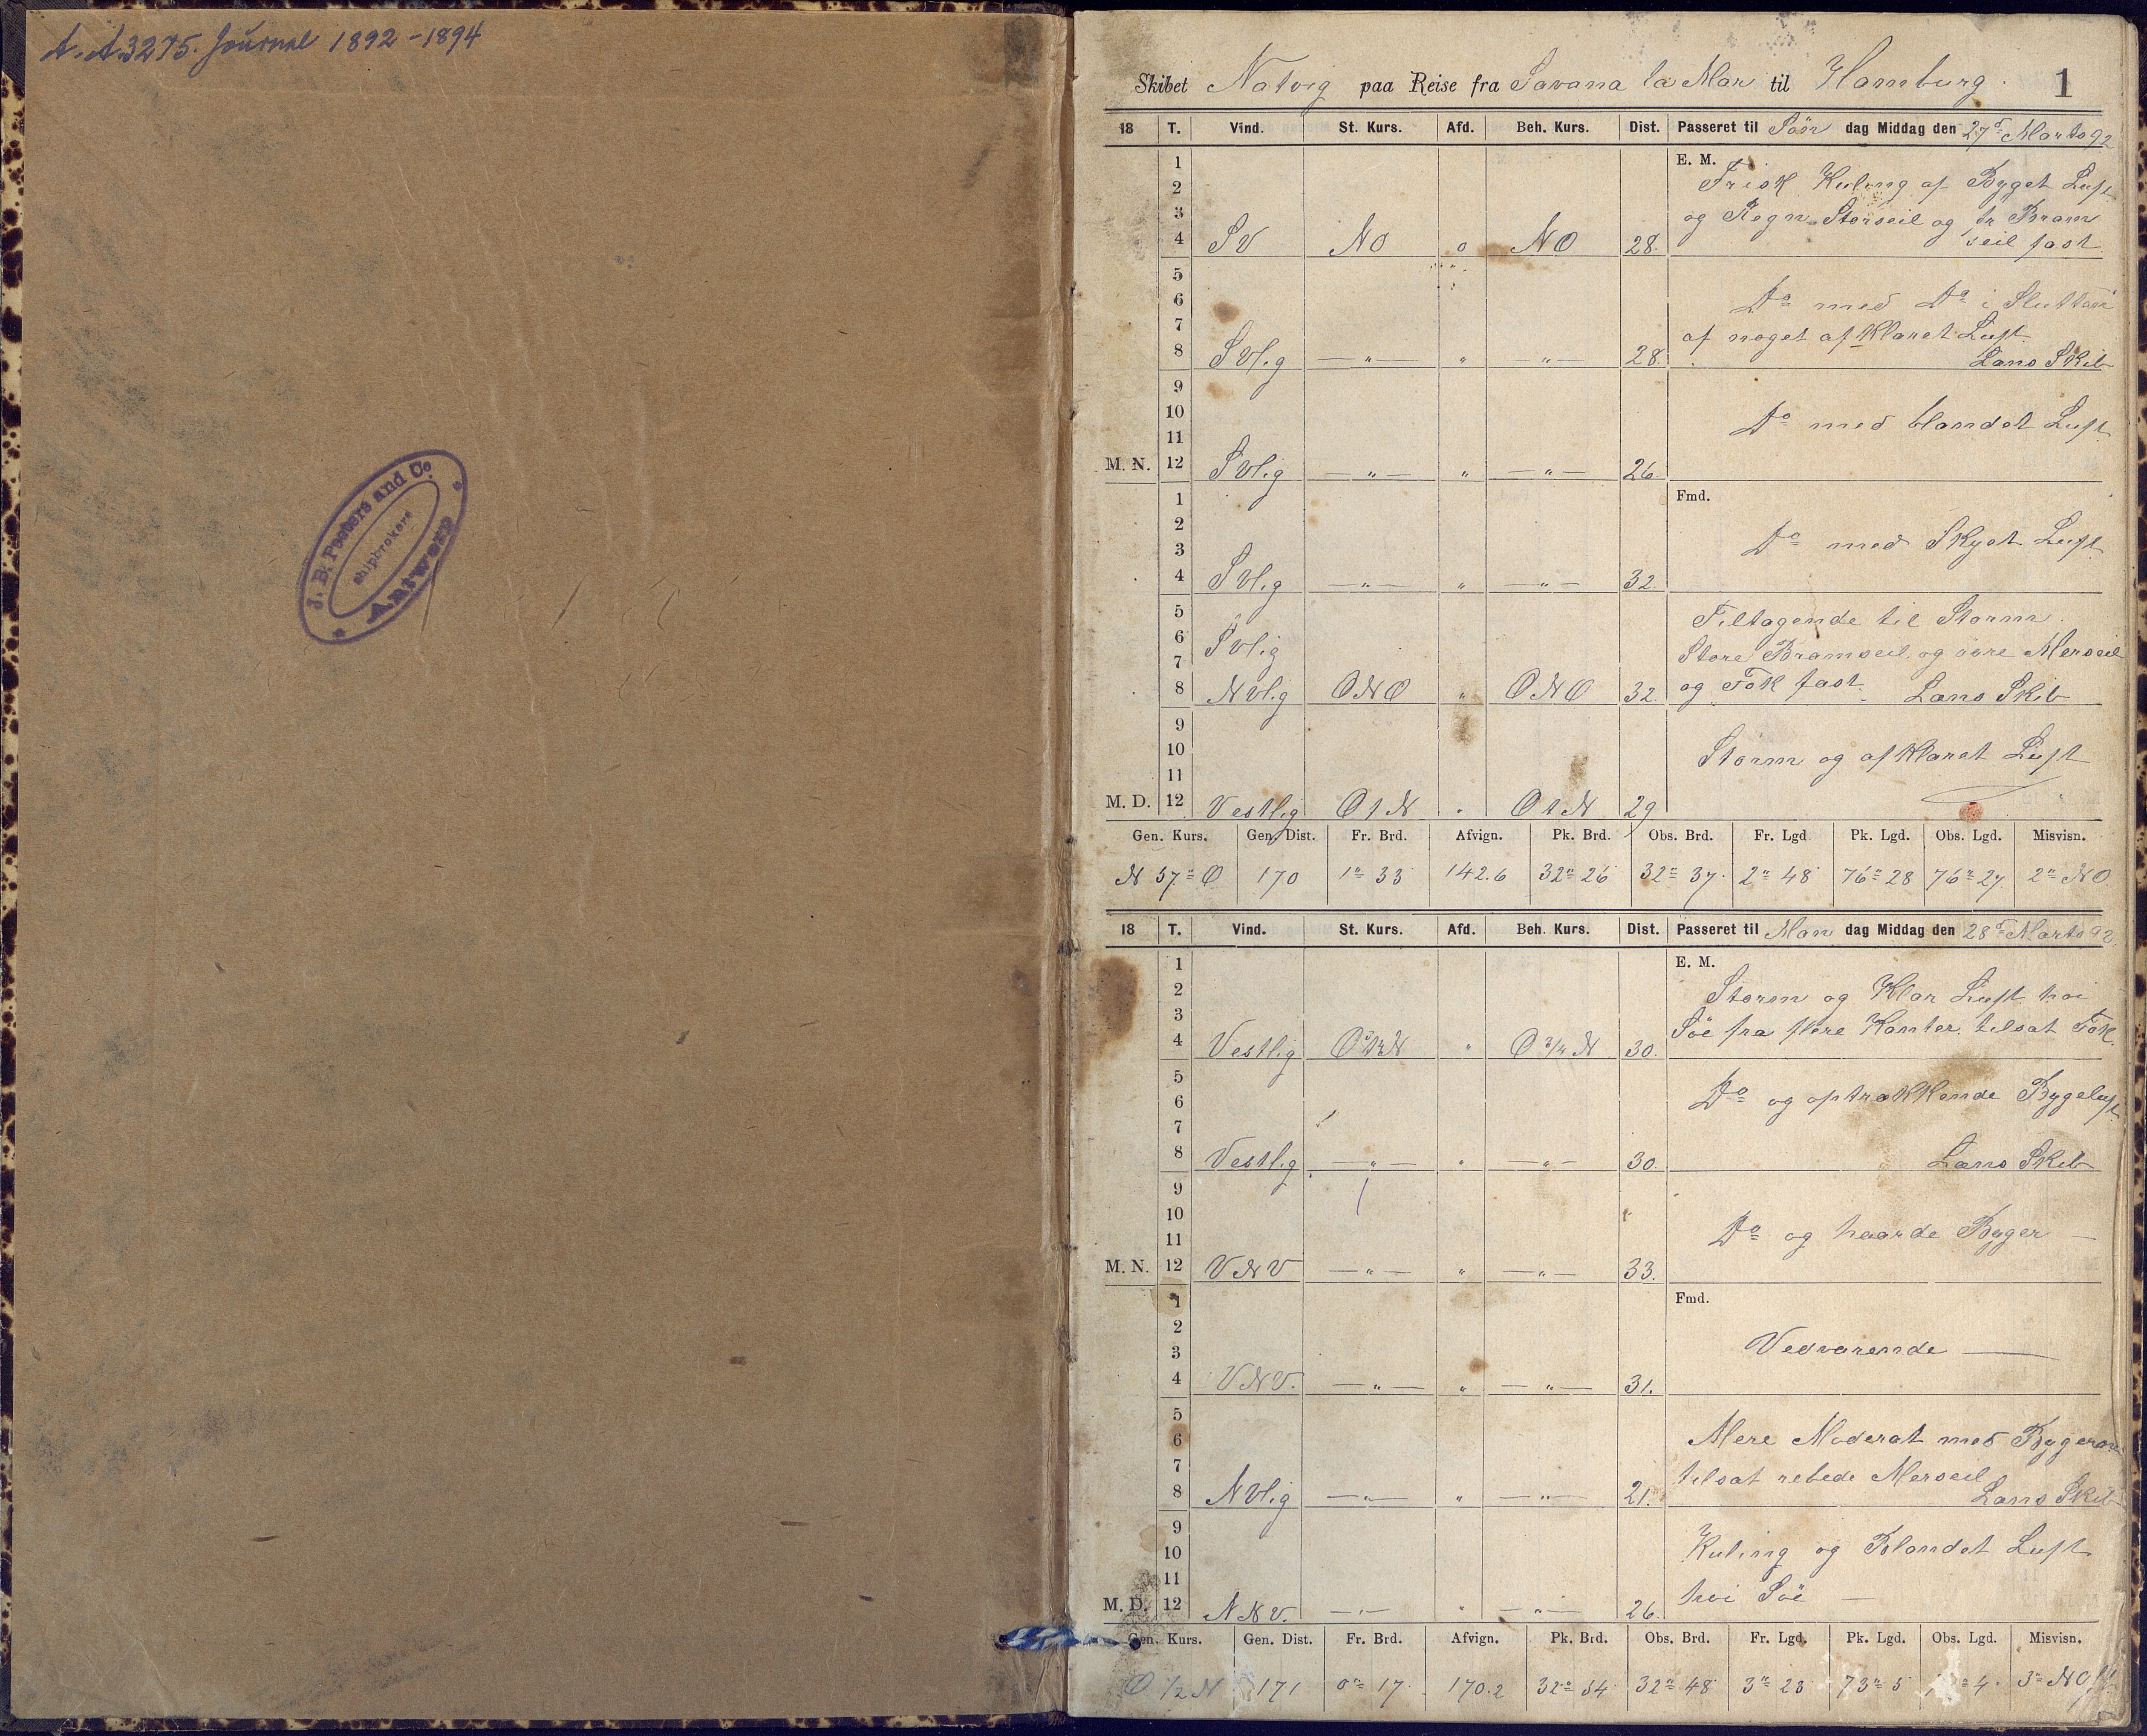 A.A 3275. Journal 1892-1894
J. B. Peeters and Co.
shipbrokers
Antwerp
Skibet Natvig paa Reise fra Savana la Mar til Hamburg. 1
18 T. Vind. St. Kurs. Afd. Beh. Kurs. Dist. Passeret til Søn dag Middag den 27de Marts 92
1 E. M.
2 Frisk Kuling af Byget Luft
3 og Regn Storseil og br Bram
4 SV NO 0 NO 28. seil fast.
5
6 Do med Do i Slutten
7 af noget afklaret Luft.
8 SVlig —"— " —"— 28. Lens Skib
9
10 Do med blandet Luft
11
M. N. 12 SVlig —"— " —"— 26.
1 Fmd.
2
3 Do med Skyet Luft
4 SVlig —"— " —"— 32.
5 Tiltagende til Storm.
6 SVlig Store Bramseil og øvre Merseil
7
8 NVlig ONO " ONO 32. og Fok fast. Lens Skib
9
10 Storm og afklaret Luft
11
M. D. 12 Vestlig O t N " O t N 29
Gen. Kurs. Gen. Dist. Fr. Brd. Afvign. Pk. Brd. Obs. Brd. Fr. Lgd Pk. Lgd. Obs. Lgd. Misvisn.
N 57° O 170 1° 33 142.6 32° 26 32° 37 2° 48 76° 28 76° 27 2° NO
18 T. Vind. St. Kurs. Afd. Beh. Kurs. Dist. Passeret til Man dag Middag den 28de Marts 92.
1 E. M.
2 Storm og Klar Luft høi
3 Söe fra flere Kanter tilsat Fok.
4 Vestlig O 3/4 N " O 3/4 N 30.
5
6 Do og optrækkende Bygeluft
7
8 Vestlig —"— " —"— 30. Lens Skib
9
10
11 Do og haarde Byger —
M. N. 12 VNV —"— " —"— 33.
1 Fmd.
2
3 Vedvarende —
4 VNV. —"— " —"— 31.
5
6 Mere Moderat med Bygerne
7 tilsat rebede Merseil
8 NVlig —"— " —"— 21. Lens Skib
9
10 Kuling og Blandet Luft
11 høi Söe —
M. D. 12 NNV. —"— " —"— 26.
Gen. Kurs. Gen. Dist. Fr. Brd. Afvign. Pk. Brd. Obs. Brd. Fr. Lgd. Pk. Lgd. Obs. Lgd. Misvisn.
O 1/2 N 171 0° 17 170.2 32° 54 32° 48 3° 23 73° 5 4 3° NO